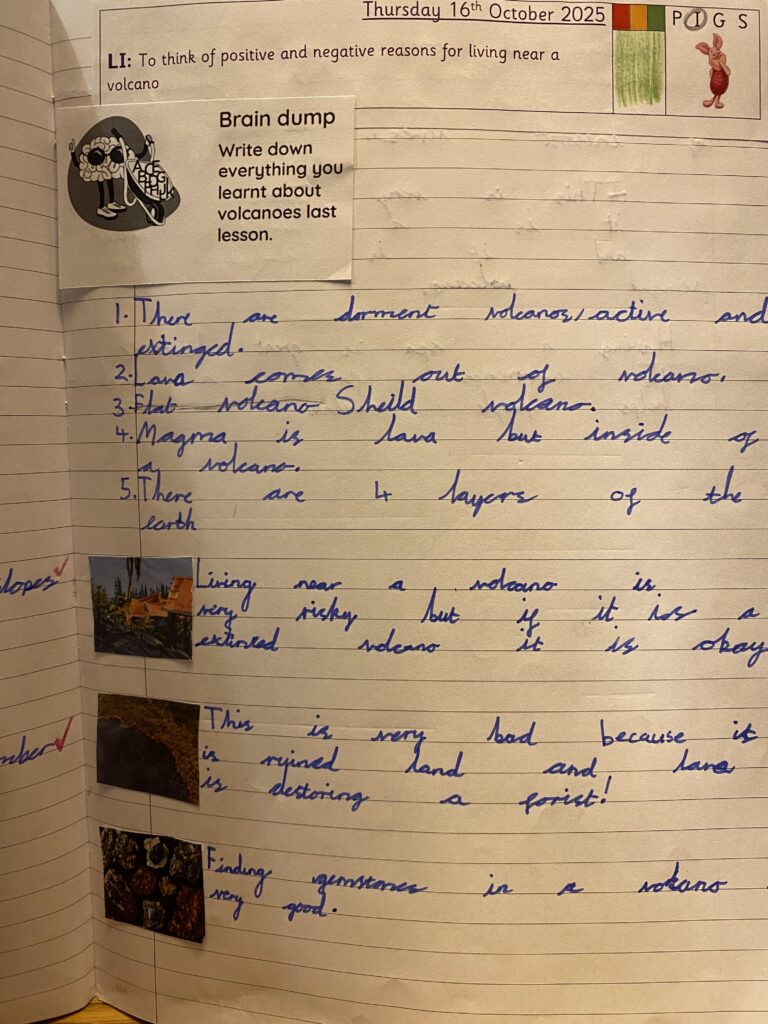 Thursday 16th October 2025
P I G S
LI: To think of positive and negative reasons for living near a
volcano
Brain dump
Write down
everything you
learnt about
volcanoes last
lesson.
1. There are dorment volcanos, active and
extinged.
2. Lava comes out of volcano.
3. Flat volcano Sheild volcano.
4. Magma is lava but inside of
a volcano.
5. There are 4 layers of the
earth
slopes
Living near a volcano is
very risky but if it iss a
extinxed volcano it is okay
This is very bad because it
mber
is ruined land and lava
is destoring a forist!
Finding gemstones in a volcano
very good.